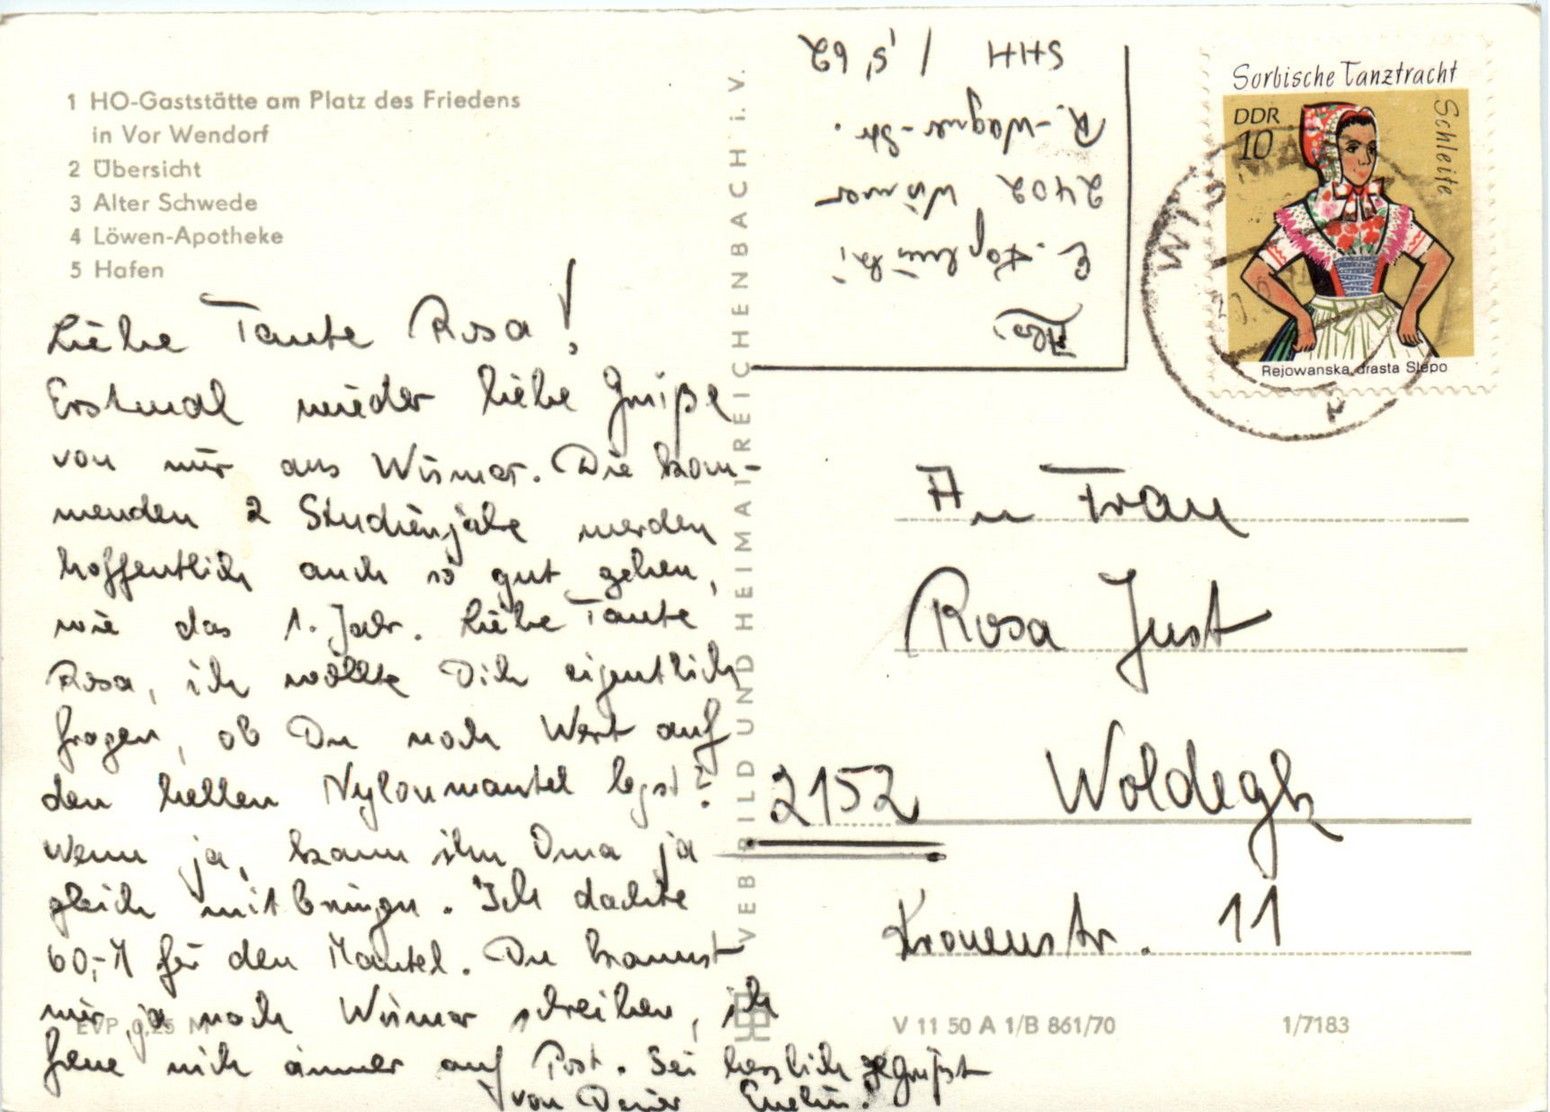 1 HO-Gaststätte am Platz des Friedens
in Vor Wendorf
2 Übersicht
3 Alter Schwede
4 Löwen-Apotheke
5 Hafen
Liebe Tante Rosa!
Erstmal wieder liebe Grüße
von mir aus Wismar. Die kom-
menden 2 Studienjahre werden
hoffentlich auch so gut gehen,
wie das 1. Jahr. Liebe Tante
Rosa, ich wollte Dich eigentlich
fragen, ob Du noch Wert auf
den hellen Nylonmantel legst?
Wenn ja, kann ihn Oma ja
gleich mitbringen. Ich dachte
60,-M für den Mantel. Du kannst
mir ja nach Wismar schreiben, ich
freue mich immer auf Post. Sei herzlich gegrüßt
von Deiner Evelin.
EVP 0,25 M
VEB BILD UND HEIMAT REICHENBACH i. V.
Abs.
E.
2402 Wismar
R.-Wagner-Str.
SHH /
Sorbische Tanztracht
Schleife
DDR
10
Rejowanska drasta Slepo
WISMAR
An Frau
Rosa Just
2152 Woldegk
Kronenstr. 11
V 11 50 A 1/B 861/70
1/7183